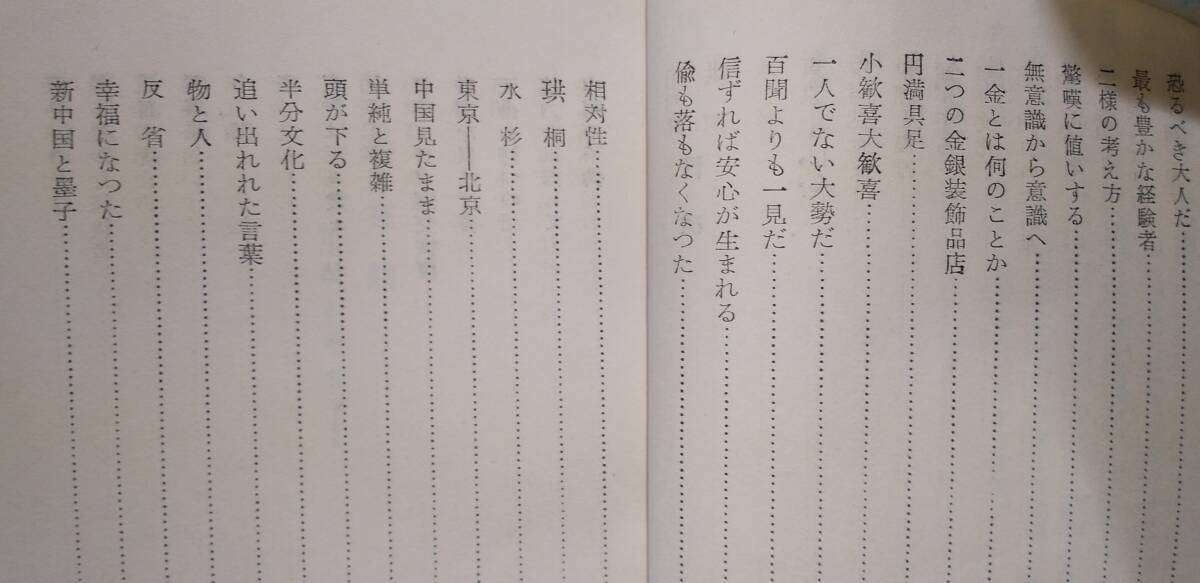 恐るべき大人だ
最も豊かな経験者
二様の考え方
驚嘆に値いする
無意識から意識へ
一金とは何のことか
二つの金銀装飾品店
円満具足
小歓喜大歓喜
一人でない大勢だ
百聞よりも一見だ
信ずれば安心が生まれる
偸も落もなくなつた
相対性
珙桐
水杉
東京——北京
中国見たまま
単純と複雑
頭が下る
半分文化
追い出れれた言葉
物と人
反省
幸福になつた
新中国と墨子